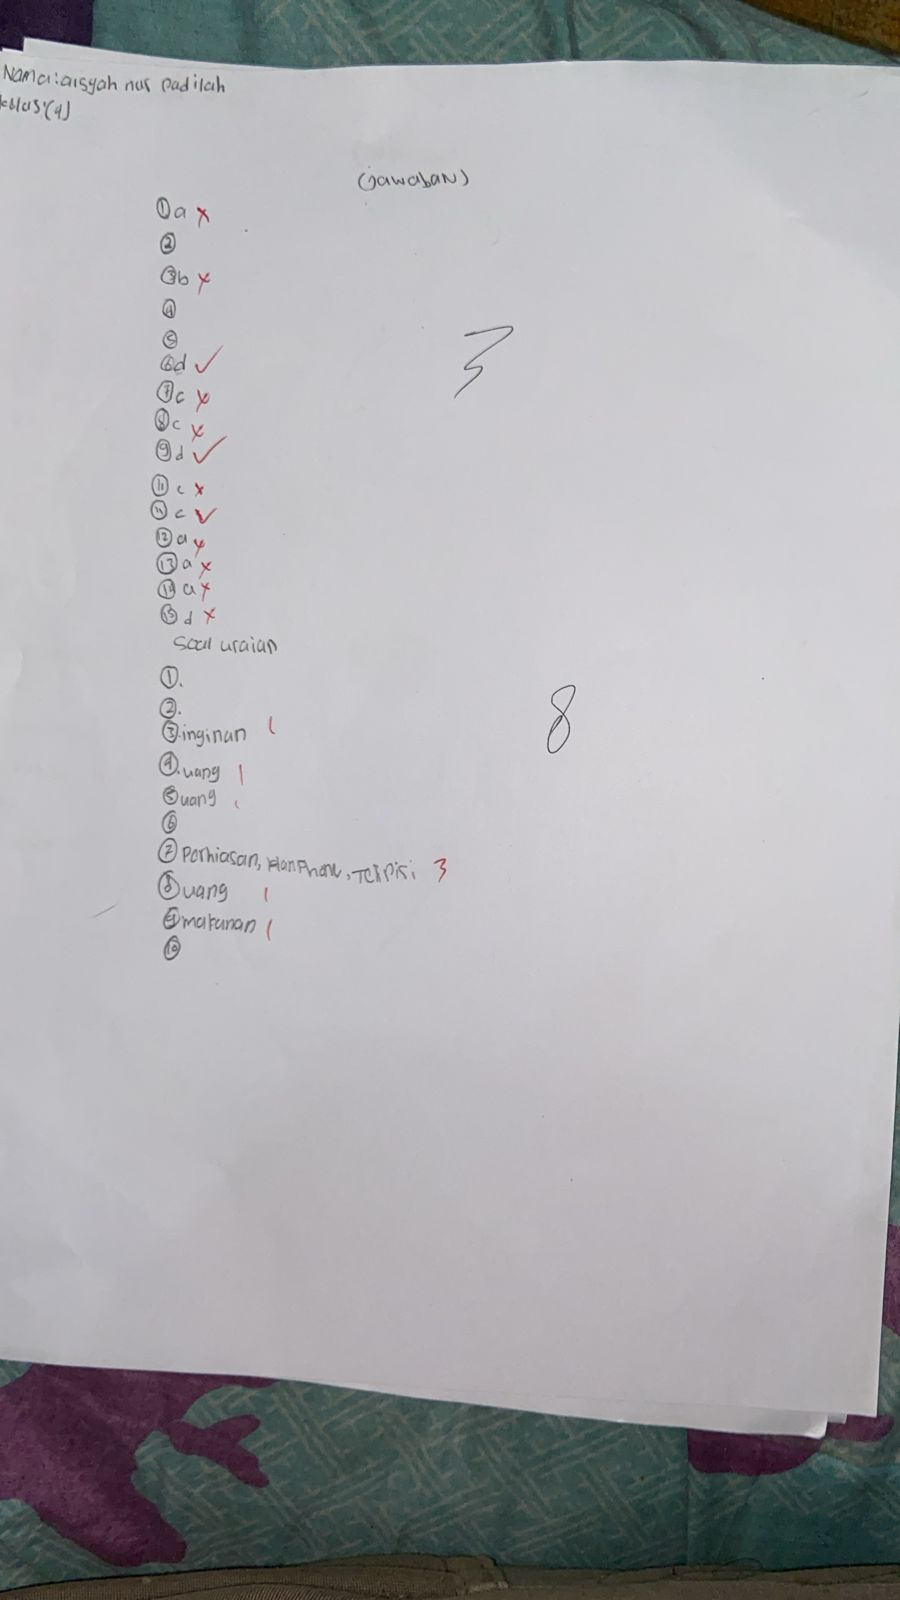 Nama: aisyah nur padilah
kelas: (4)
(jawaban)
① a x
②
③ b x
④
⑤
⑥ d ✓
⑦ c x
⑧ c x
⑨ d ✓
⑪ c x
⑪ c ✓
⑫ a x
⑬ a x
⑭ a x
⑮ d x
3
Soal uraian
①.
②.
③. inginan 1
④. uang 1
⑤ uang 1
⑥
⑦ Perhiasan, HanPhone, 3
⑧ uang 1
⑨ makanan 1
⑩
8